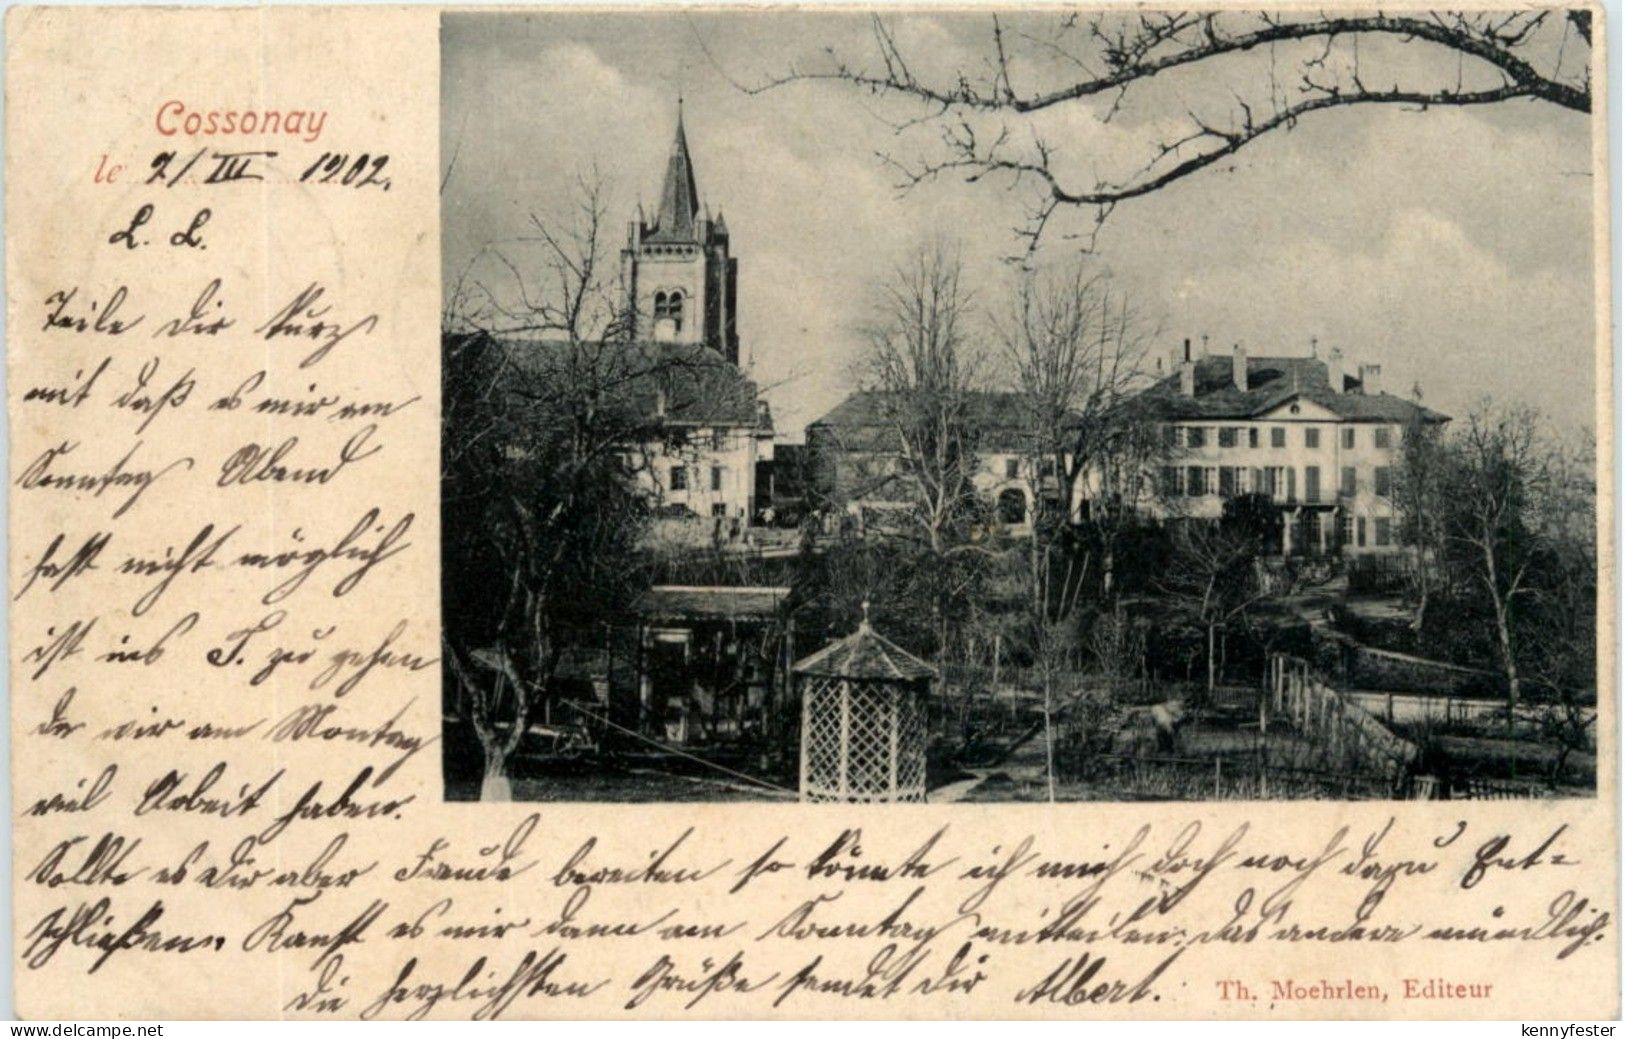 Cossonay
le 7/III 1902.
L. L.
Teile Dir kurz
mit daß es mir am
Sonntag Abend
fast nicht möglich
ist ins T. zu gehen
da wir am Montag
viel Arbeit haben.
Sollte es Dir aber Freude bereiten so könnte ich mich doch noch dazu Ent=
schließen. Kanst es mir dann am Sonntag mitteilen. das andere mündlich.
Die herzlichsten Grüße sendet Dir Albert.
Th. Moehrlen, Editeur
delcampe.net
kennyfester